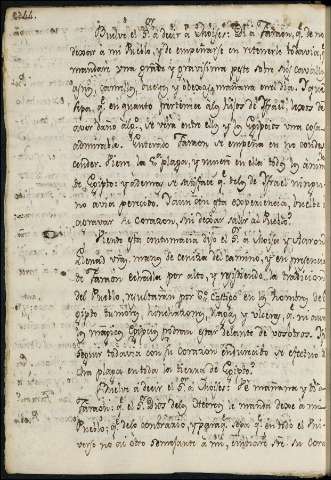 Buelve el Sr. à decir à Moises: Di à Faraon, q. si no
dexare à mi Pueblo, y se empeñare en retenerle todavia,
mandare una grãde y gravisima peste sobre sus cavallos,
asnos, camellos, bueyes y obejas, mañana
en quanto pertenece alos hijos de Israel,
se verà entre ellos y los Egipcios una cosa
admirable. Enterado Faraon se empeña en no condes
cender. Viene la 5a. plaga, y mueren en ella todos los anim
de Egipto: y ademas se satisface q. delos de Israel ninguno
no avia perecido. Y aun con esta experiencia, buelve à
agravar su Corazon, ni dexar salir al Pueblo.
Viendo esta contumacia dijo el Sr. à Moises y Aaron:
Llenad las manos de ceniza del camino, y en presencia
de Faraon echadla por alto, y
del Pueblo, resultaràn por 6o. Castigo en los hombres de
Egipto tumores, hinchazones, llagas, y ulceras, q. ni aun
los magicos Egipcios podran estar delante de vosotros.
seguir todavia con su Corazon endurecido se efectuò
dha plaga en toda la tierra de Egipto.
Buelve à decir el Sr. à Moises: Ve mañana y
Faraon: q. el Sr. Dios delos Hebreos le manda dexe à mi
Pueblo; q. delo contrario, y para q. sepa q. en todo el Uni
verso no ai otro semejante à mi, embiarè sre. su Cora